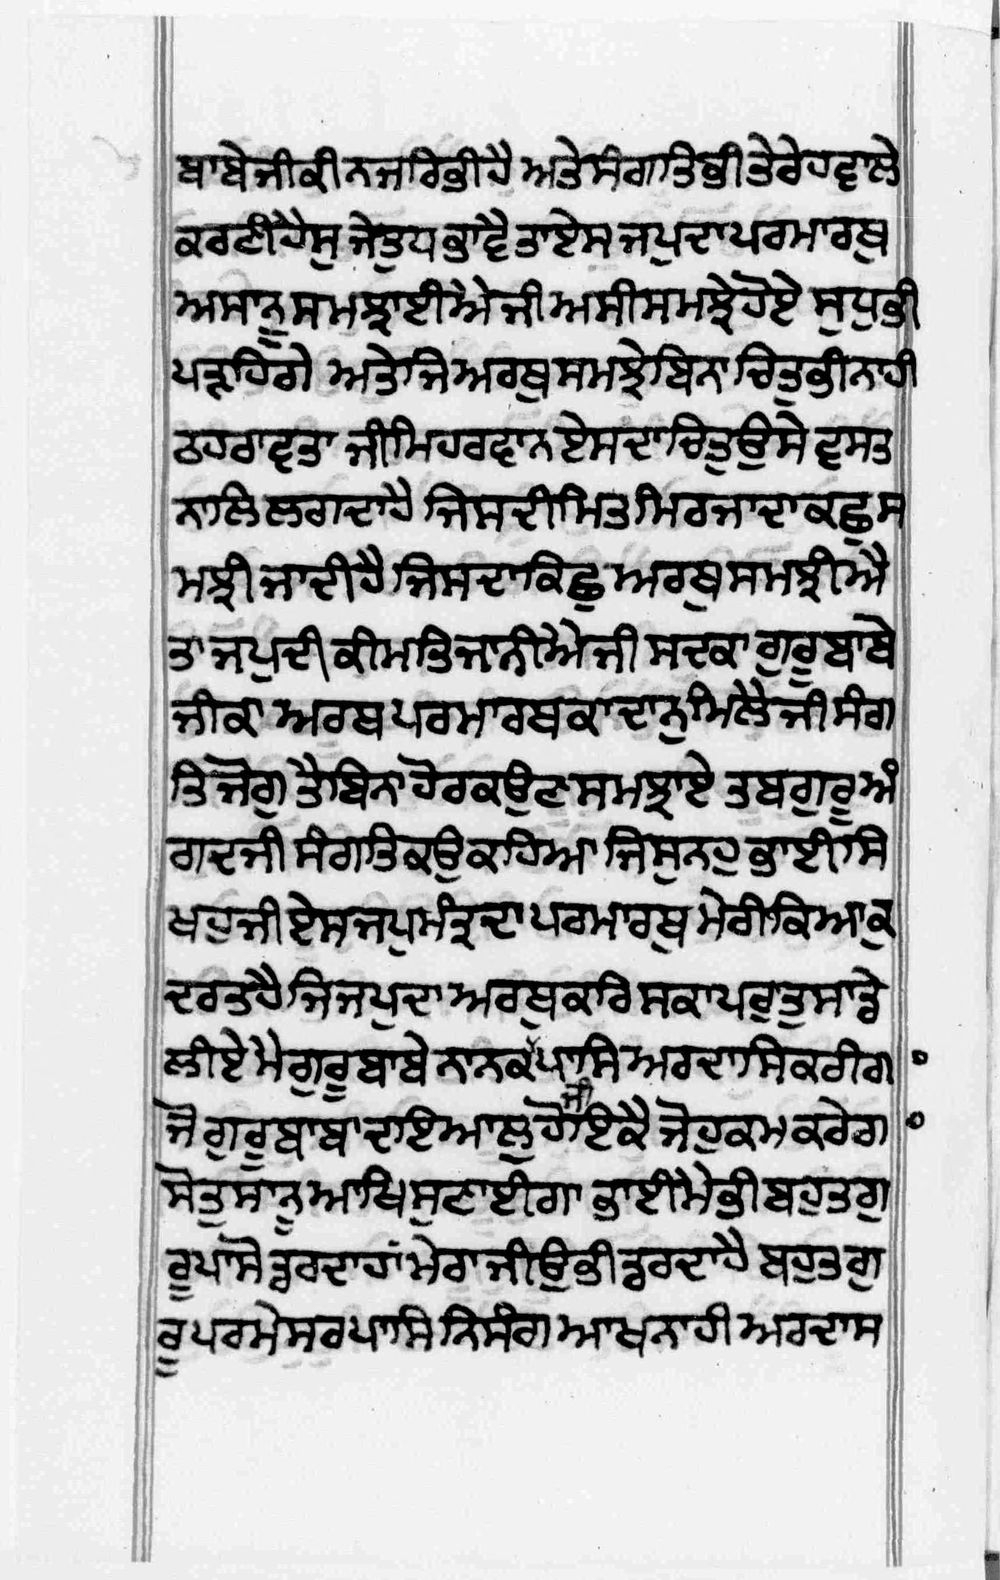 ਬਾਬੇ ਜੀ ਕੀ ਨਜਰਿ ਭੀ ਹੈ ਅਤੇ ਸੰਗਤਿ ਭੀ ਤੇਰੇ ਹਵਾਲੇ
ਕਰਣੀ ਹੈਸੁ ਜੇ ਤੁਧ ਭਾਵੈ ਤਾ ਏਸ ਜਪੁ ਦਾ ਪਰਮਾਰਥੁ
ਅਸਾਨੂ ਸਮਝਾਈਐ ਜੀ ਅਸੀ ਸਮਝੇ ਹੋਏ ਸੁਧੁ ਭੀ
ਪੜਹਿਗੇ ਅਤੇ ਜਿ ਅਰਥੁ ਸਮਝੇ ਬਿਨਾ ਚਿਤੁ ਭੀ ਨਾਹੀ
ਠਹਰਾਵਤਾ ਜੀ ਮਿਹਰਵਾਨ ਏਸ ਦਾ ਚਿਤੁ ਉਸੇ ਵਸਤ
ਨਾਲਿ ਲਗਦਾ ਹੈ ਜਿਸ ਦੀ ਮਿਤ ਮਿਰਜਾਦਾ ਕਛੁ ਸ
ਮਝੀ ਜਾਦੀ ਹੈ ਜਿਸ ਦਾ ਕਿਛੁ ਅਰਥੁ ਸਮਝੀਐ
ਤਾ ਜਪੁ ਦੀ ਕੀਮਤਿ ਜਾਨੀਐ ਜੀ ਸਦਕਾ ਗੁਰੂ ਬਾਬੇ
ਜੀ ਕਾ ਅਰਥ ਪਰਮਾਰਥ ਕਾ ਦਾਨੁ ਮਿਲੈ ਜੀ ਸੰਗ
ਤਿ ਜੋਗੁ ਤੈ ਬਿਨਾ ਹੋਰ ਕਉਣ ਸਮਝਾਏ ਤਬ ਗੁਰੂ ਅੰ
ਗਦ ਜੀ ਸੰਗਤਿ ਕਉ ਕਹਿਆ ਜਿ ਸੁਨਹੁ ਭਾਈ ਸਿ
ਖਹੁ ਜੀ ਏਸ ਜਪੁ ਮੰਤ੍ਰ ਦਾ ਪਰਮਾਰਥੁ ਮੇਰੀ ਕਿਆ ਕੁ
ਦਰਤ ਹੈ ਜਿ ਜਪੁ ਦਾ ਅਰਥੁ ਕਰਿ ਸਕਾ ਪਰੁ ਤੁਸਾਡੇ
ਲੀਏ ਮੈ ਗੁਰੂ ਬਾਬੇ ਨਾਨਕ ਜੀ ਪਾਸਿ ਅਰਦਾਸਿ ਕਰੀਗਾ
ਜੋ ਗੁਰੂ ਬਾਬਾ ਦਇਆਲੁ ਹੋਇਕੈ ਜੋ ਹੁਕਮ ਕਰੇਗਾ
ਸੋ ਤੁਸਾਨੂ ਆਖਿ ਸੁਣਾਈਗਾ ਭਾਈ ਮੈ ਭੀ ਬਹੁਤ ਗੁ
ਰੂ ਪਾਸੋ ਡਰਦਾ ਹਾਂ ਮੇਰਾ ਜੀਉ ਭੀ ਡਰਦਾ ਹੈ ਬਹੁਤ ਗੁ
ਰੂ ਪਰਮੇਸਰ ਪਾਸਿ ਨਿਸੰਗ ਆਖ ਨਾਹੀ ਅਰਦਾਸ